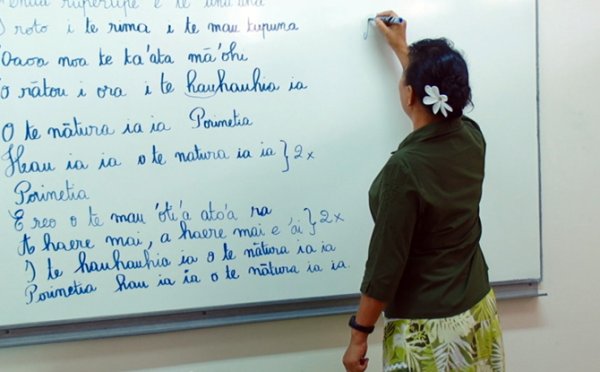 i te rima i te mau tupuna
'Oaoa noa te ta'ata mā'ohi
'O rātou i ora i te hauhauhia ia
O te nātura ia ia Porinetia
Heau ia ia o te natura ia ia } 2x
Porinetia
E reo o te mau 'ōti'a ato'a ra
A haere mai, a haere mai e 'āi } 2x
I te hauhauhia ia o te nātura ia ia
Porinetia hau ia ia o te nātura ia ia.